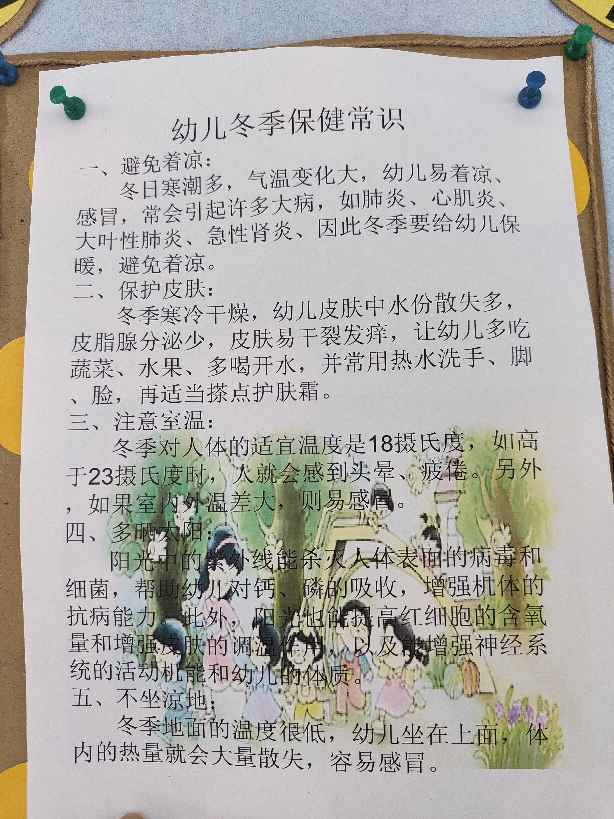 幼儿冬季保健常识
一、避免着凉：
冬日寒潮多，气温变化大，幼儿易着凉、
感冒，常会引起许多大病，如肺炎、心肌炎、
大叶性肺炎、急性肾炎、因此冬季要给幼儿保
暖，避免着凉。
二、保护皮肤：
冬季寒冷干燥，幼儿皮肤中水份散失多，
皮脂腺分泌少，皮肤易干裂发痒，让幼儿多吃
蔬菜、水果、多喝开水，并常用热水洗手、脚
、脸，再适当搽点护肤霜。
三、注意室温：
冬季对人体的适宜温度是18摄氏度，如高
于23摄氏度时，人就会感到头晕、疲倦。另外
，如果室内外温差大，则易感冒。
四、多晒太阳：
阳光中的紫外线能杀灭人体表面的病毒和
细菌，帮助幼儿对钙、磷的吸收，增强机体的
抗病能力。此外，阳光也能提高红细胞的含氧
量和增强皮肤的调温作用，以及能增强神经系
统的活动机能和幼儿的体质。
五、不坐凉地：
冬季地面的温度很低，幼儿坐在上面，体
内的热量就会大量散失，容易感冒。